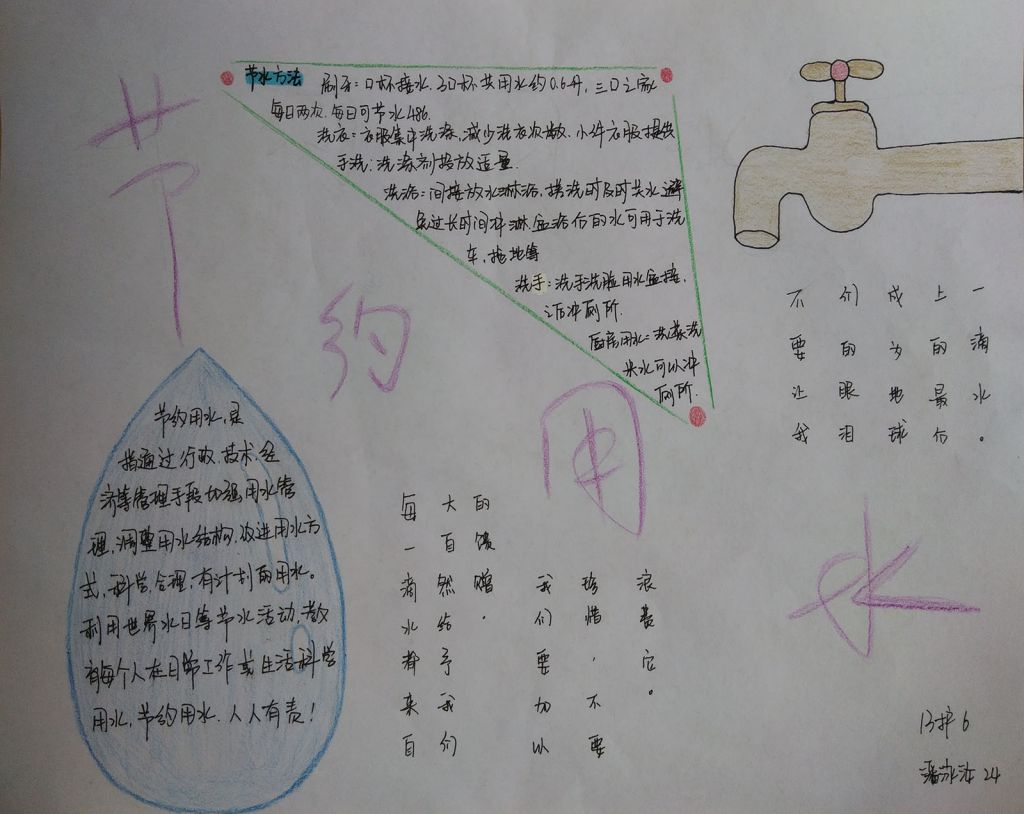 节
约
用
水
节水方法
刷牙:口杯接水,3口杯共用水约0.6升,三口之家
每日两次,每日可节水486.
洗衣:衣服集中洗涤,减少洗衣次数,小件衣服提倡
手洗;洗涤剂投放适量.
洗浴:间接放水淋浴,搓洗时及时关水,避
免过长时间冲淋,盆浴后的水可用于洗
车,拖地等
洗手:洗手洗脸用水盆接,
之后冲厕所.
厨房用水:洗菜洗
米水可以冲
厕所.
不们成上一
要的为的滴
让眼地最水
我泪球后。
节约用水,是
指通过行政.技术.经
济等管理手段加强用水管
理,调整用水结构,改进用水方
式,科学,合理,有计划的用水。
利用世界水日等节水活动,教
育每个人在日常工作或生活科学
用水,节约用水.人人有责!
每大的
一自馈
滴然赠.
水给
都予
来我
自们
我珍浪
们惜费
要,它
切不。
以要
13护6
24